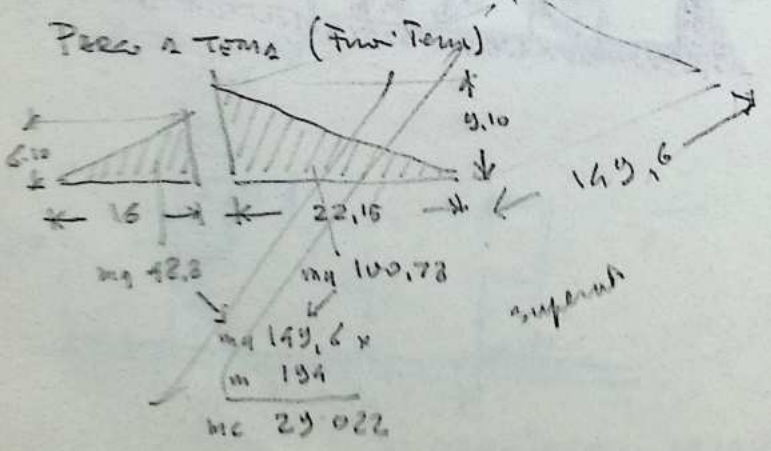 PARCO A TEMA (Fuori Tema)
9,10
6.10
149,6
16 22,15
mq 48,8 mq 100,78
mq 149,6 x
m 194
mc 29 022